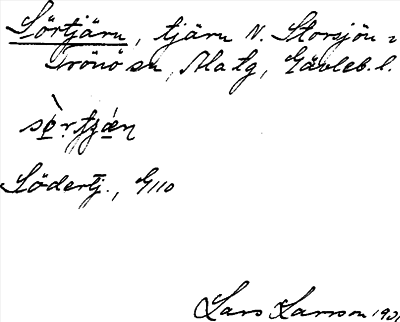 Sörtjärn, tjärn N. Storsjön =
Trönö sn, Ala tg, Gävleb. l.
sö̀rtjæ̀n
Södertj., G110
Lars Larsson 193